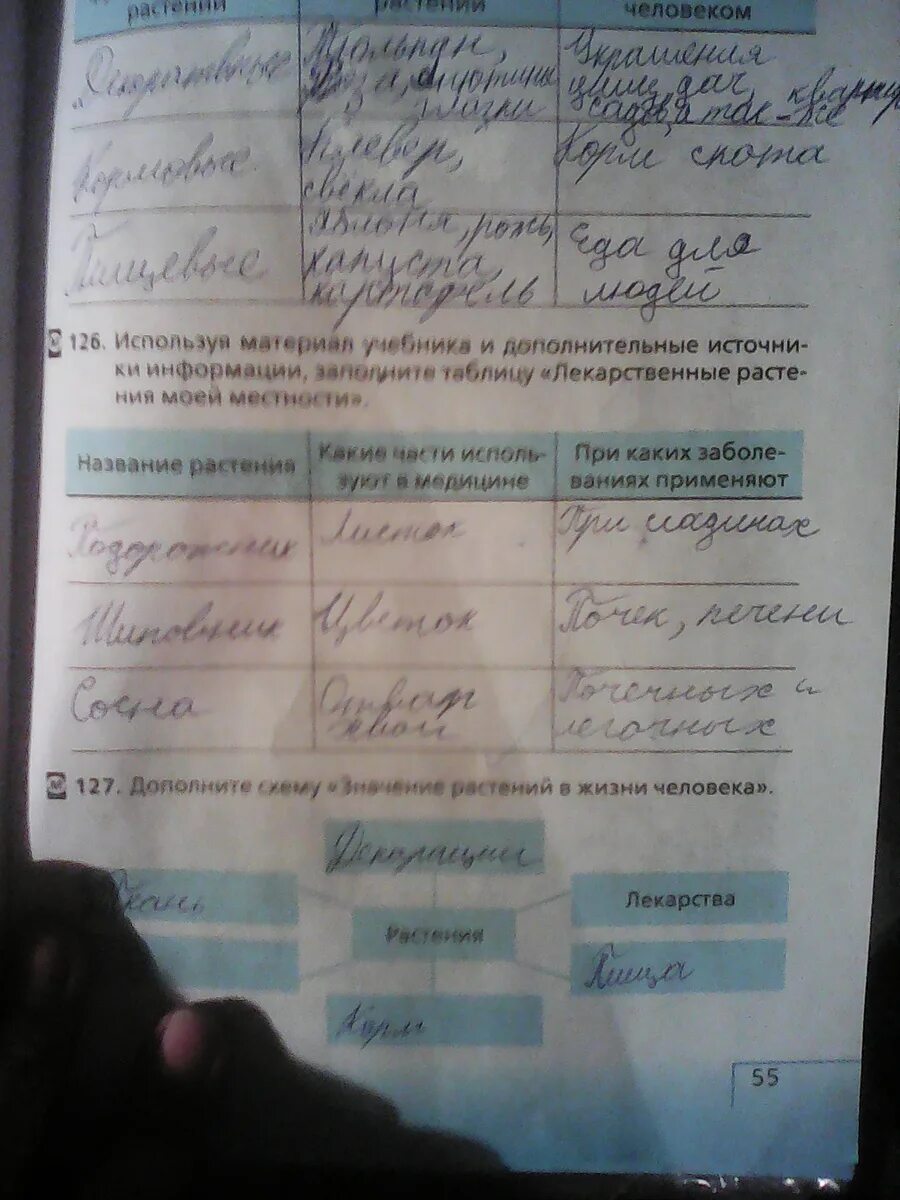 растений
растений
человеком
Декоративные
Тюльпан,
глазки
Украшения
дач,
садов, а так-же
Кормовые
Клевер,
свёкла
Корм скота
Пищевые
Яблоня, рожь,
капуста,
картофель
Еда для
людей
126. Используя материал учебника и дополнительные источни-
ки информации, заполните таблицу «Лекарственные расте-
ния моей местности».
Название растения
Какие части исполь-
зуют в медицине
При каких заболе-
ваниях применяют
Подорожник
Листок
При
Шиповник
Цветок
Почек, печени
Сосна
Отвар
хвои
Почечных и
легочных
М 127. Дополните схему «Значение растений в жизни человека».
Декорации
Ткань
Лекарства
Растения
Пища
Корм
55